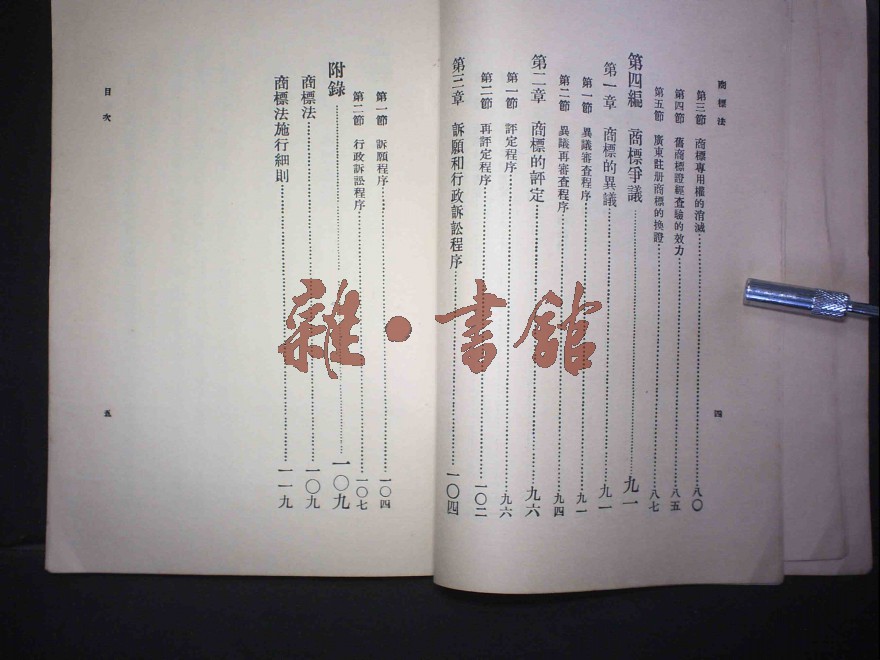 商標法
第三節 商標專用權的消滅……八〇
第四節 舊商標證經查驗的效力……八五
第五節 廣東註册商標的換證……八七
第四編 商標爭議……九一
第一章 商標的異議……九一
第一節 異議審查程序……九一
第二節 異議再審查程序……九四
第二章 商標的評定……九六
第一節 評定程序……九六
第二節 再評定程序……一〇二
第三章 訴願和行政訴訟程序……一〇四
四
第一節 訴願程序……一〇四
第二節 行政訴訟程序……一〇七
附錄……一〇九
商標法……一〇九
商標法施行細則……一一九
目次
五
雜·書館